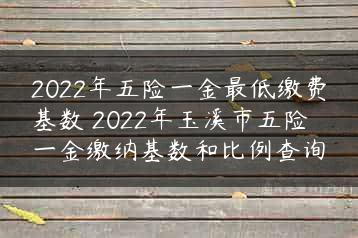 2022年五险一金最低缴费
基数 2022年玉溪市五险
一金缴纳基数和比例查询